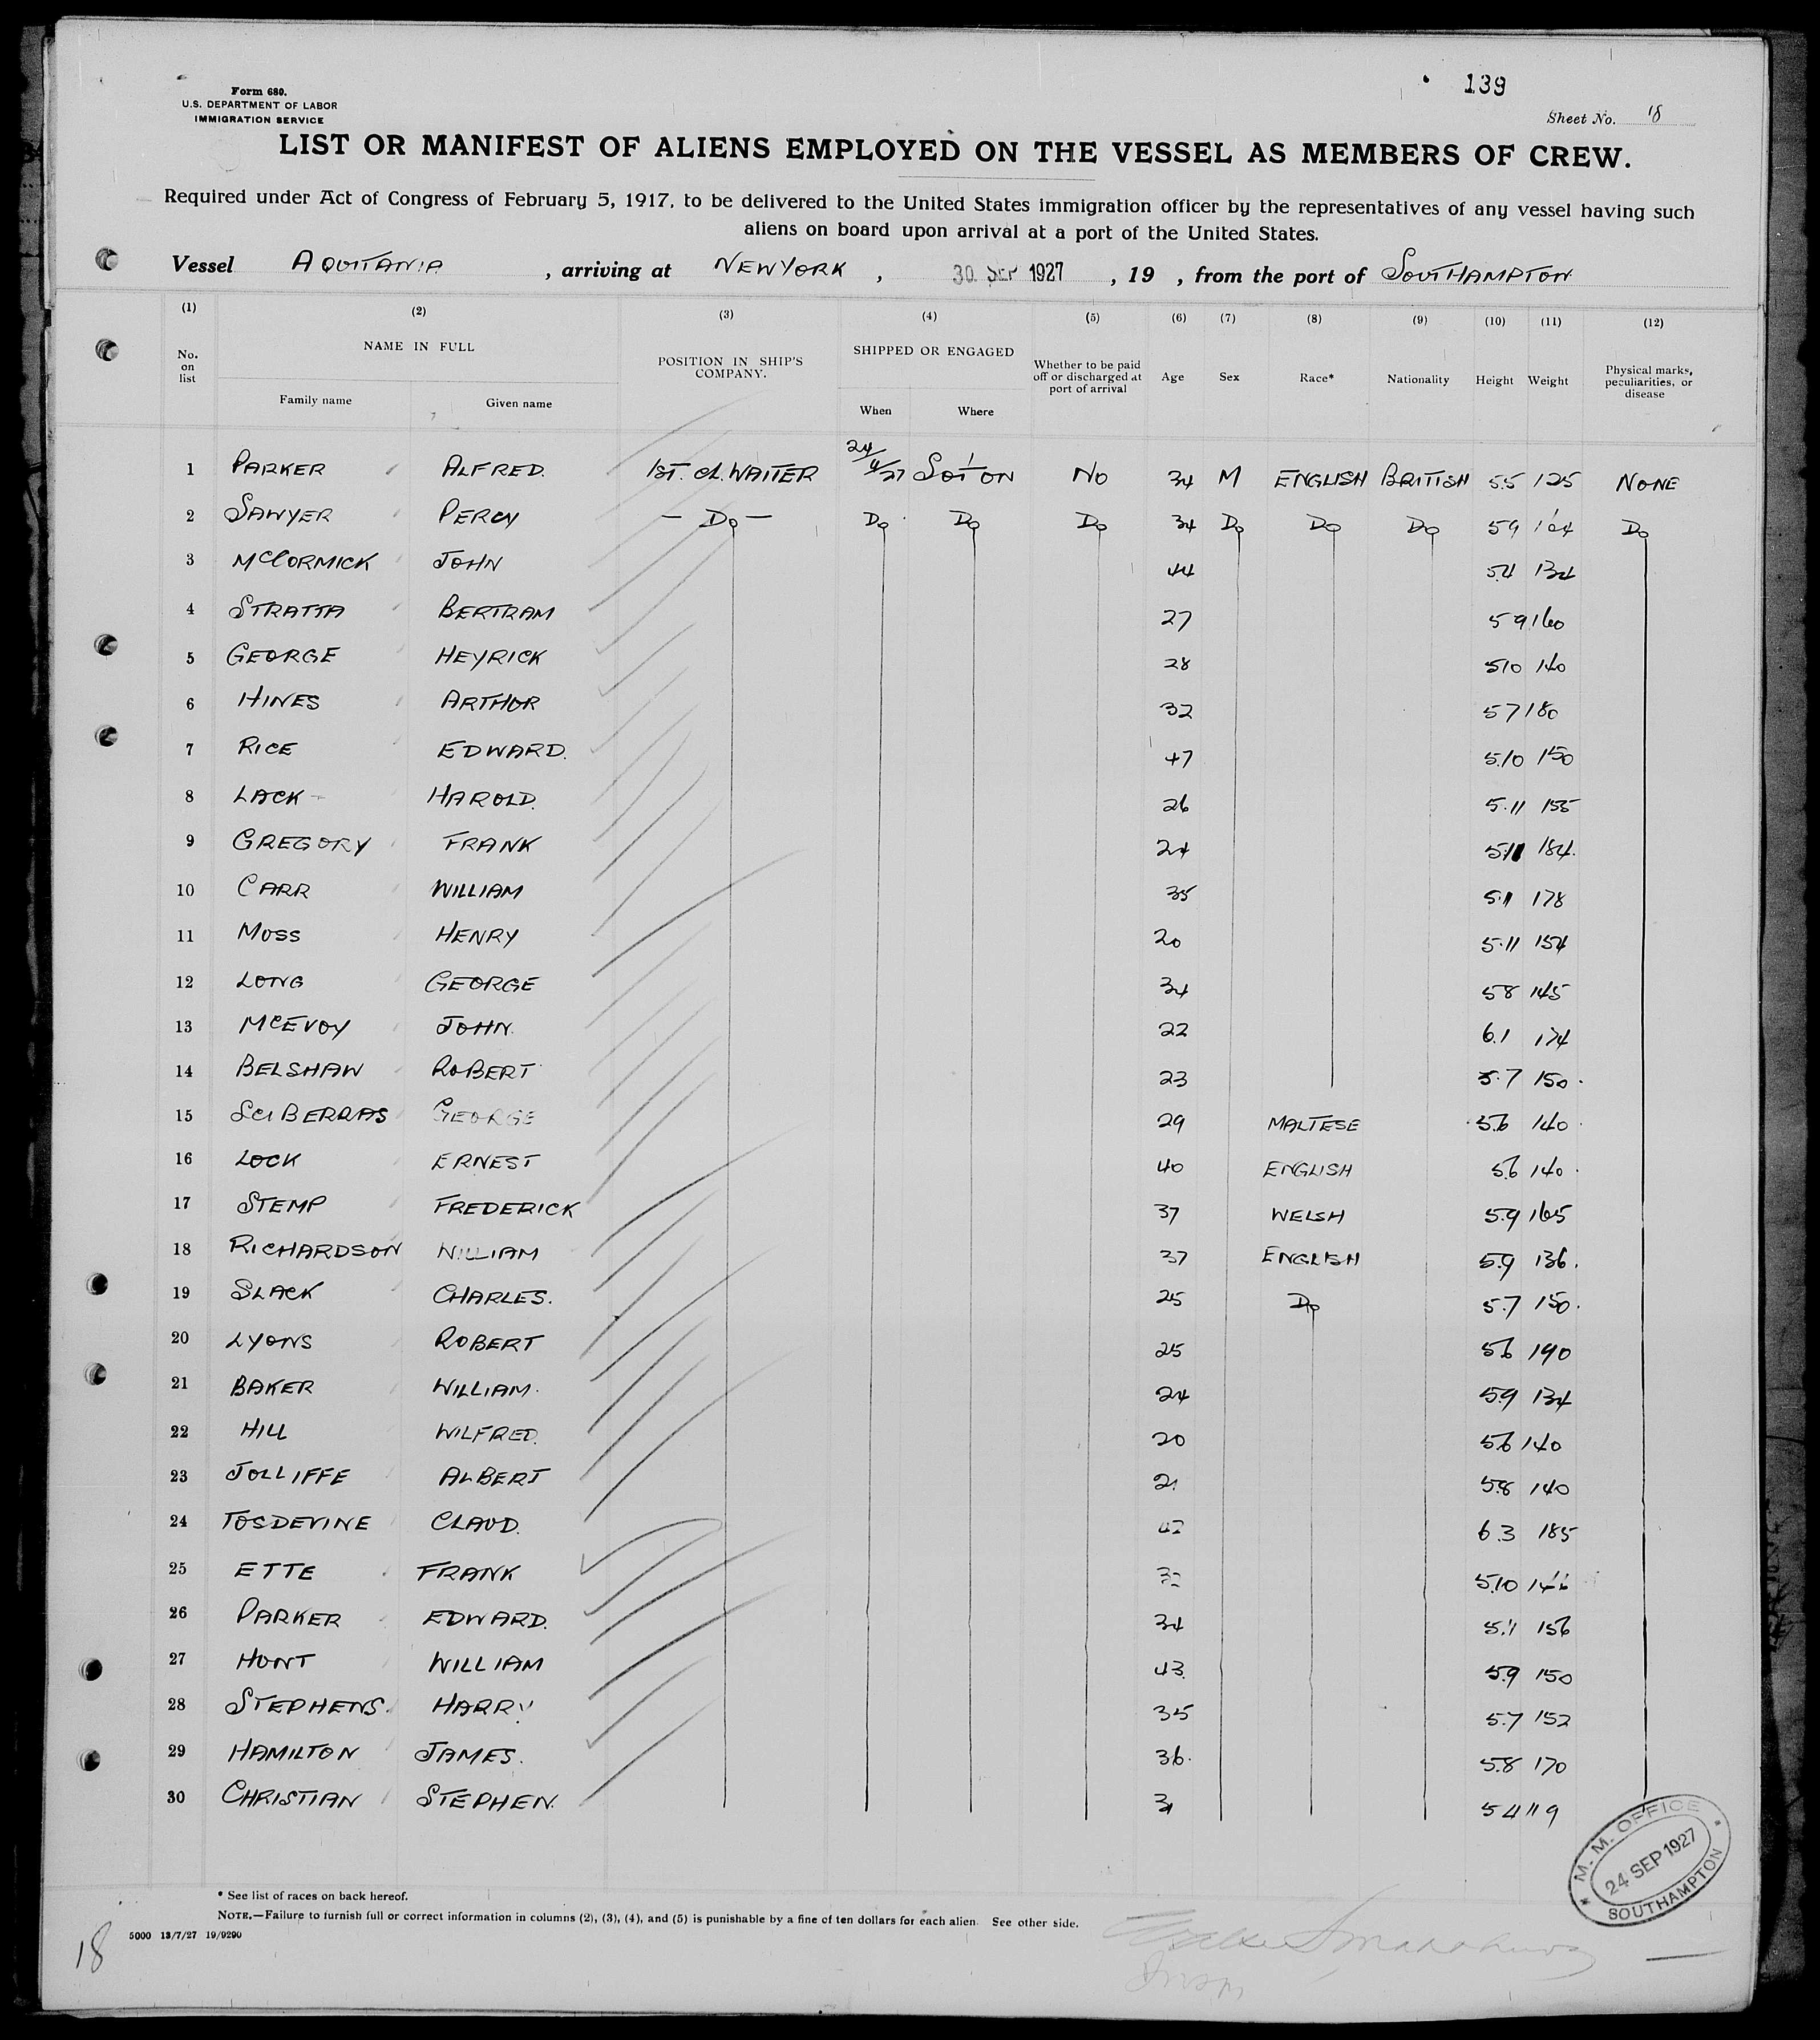 139
Form 680.
U.S. DEPARTMENT OF LABOR
IMMIGRATION SERVICE
Sheet No. 18
LIST OR MANIFEST OF ALIENS EMPLOYED ON THE VESSEL AS MEMBERS OF CREW.
Required under Act of Congress of February 5, 1917, to be delivered to the United States immigration officer by the representatives of any vessel having such
aliens on board upon arrival at a port of the United States.
Vessel AQUITANIA , arriving at NEW YORK , 30 SEP 1927 , 19 , from the port of SOUTHAMPTON
(1) (2) (3) (4) (5) (6) (7) (8) (9) (10) (11) (12)
No. on list NAME IN FULL POSITION IN SHIP'S COMPANY. SHIPPED OR ENGAGED Whether to be paid off or discharged at port of arrival Age Sex Race* Nationality Height Weight Physical marks, peculiarities, or disease
Family name Given name When Where
1 PARKER ALFRED. 1ST. Cl. WAITER 24/9/27 SO'TON NO 34 M ENGLISH BRITISH 5.5 125 NONE
2 SAWYER PERCY — Do — Do Do Do 34 Do Do Do 5 9 164 Do
3 McCORMICK JOHN 44 5.4 134
4 STRATTA BERTRAM 27 5 9 160
5 GEORGE HEYRICK 28 5 10 140
6 HINES ARTHUR 32 5 7 180
7 RICE EDWARD. 47 5.10 150
8 LACK HAROLD. 26 5.11 155
9 GREGORY FRANK 24 5.11 184.
10 CARR WILLIAM 35 5.11 178
11 MOSS HENRY 20 5.11 154
12 LONG GEORGE 34 5 8 145
13 McEVOY JOHN. 22 6.1 174
14 BELSHAW ROBERT 23 5.7 150.
15 SCIBERRAS GEORGE 29 MALTESE 5.6 140.
16 LOCK ERNEST 40 ENGLISH 5.6 140.
17 STEMP FREDERICK 37 WELSH 5.9 165
18 RICHARDSON WILLIAM 37 ENGLISH 5.9 136.
19 SLACK CHARLES. 25 Do 5.7 150.
20 LYONS ROBERT 25 5.6 190
21 BAKER WILLIAM. 24 5.9 134
22 HILL WILFRED. 20 5.6 140
23 JOLLIFFE ALBERT 21 5.8 140
24 TOSDEVINE CLAUD. 6.3 185
25 ETTE FRANK 5.10 146
26 PARKER EDWARD. 34 5.11 156
27 HUNT WILLIAM 43. 5.9 150
28 STEPHENS. HARRY 35 5.7 152
29 HAMILTON JAMES. 36. 5.8 170
30 CHRISTIAN STEPHEN. 31 5 4 119
M. M. OFFICE
24 SEP 1927
SOUTHAMPTON
* See list of races on back hereof.
NOTE.—Failure to furnish full or correct information in columns (2), (3), (4), and (5) is punishable by a fine of ten dollars for each alien. See other side.
5000 13/7/27 19/9290
18